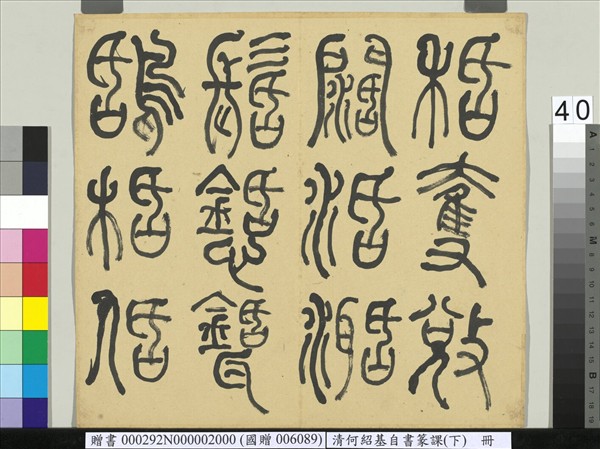 栝奪敚
闊活
髺
鴰栝佸
40
贈書 000292N000002000 (國贈 006089) 清何紹基自書篆課(下) 冊